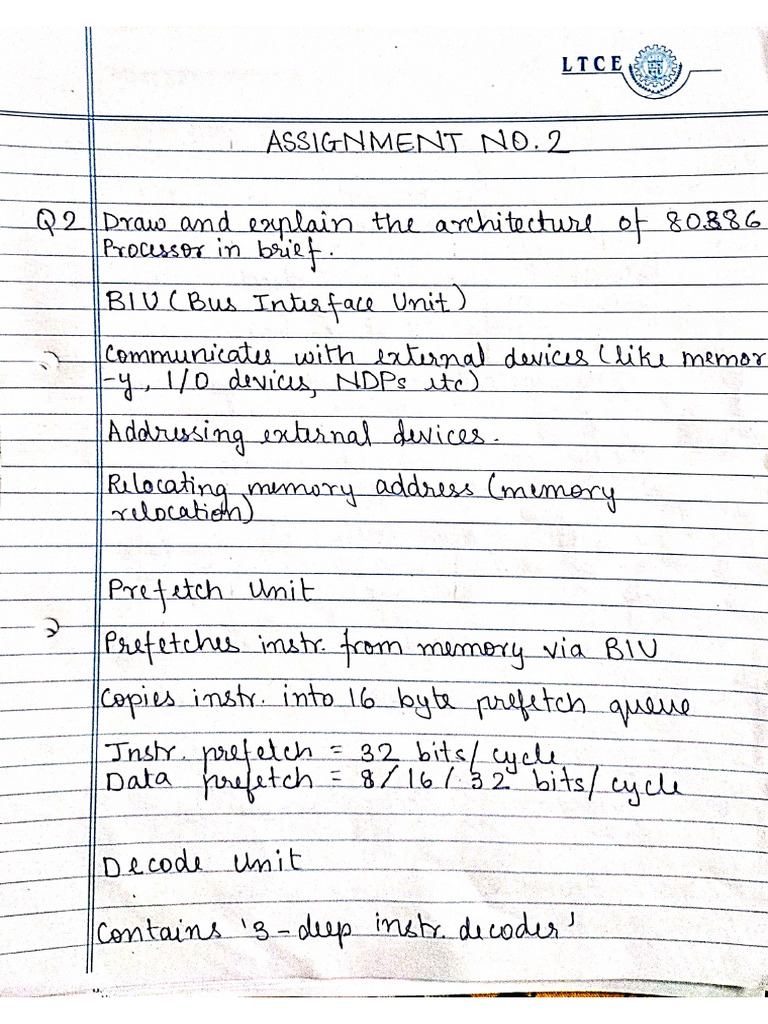 LTCE
ASSIGNMENT NO.2
Q2 Draw and explain the architecture of 80386
Processor in brief.
BIU (Bus Interface Unit)
Communicates with external devices (like memor
-y, I/O devices, NDPs etc)
Addressing external devices.
Relocating memory address (memory
relocation)
Prefetch Unit
Prefetches instr. from memory via BIU
Copies instr. into 16 byte prefetch queue
Instr. prefetch = 32 bits/cycle
Data prefetch = 8/16/32 bits/cycle
Decode Unit
Contains '3-deep instr. decoder'